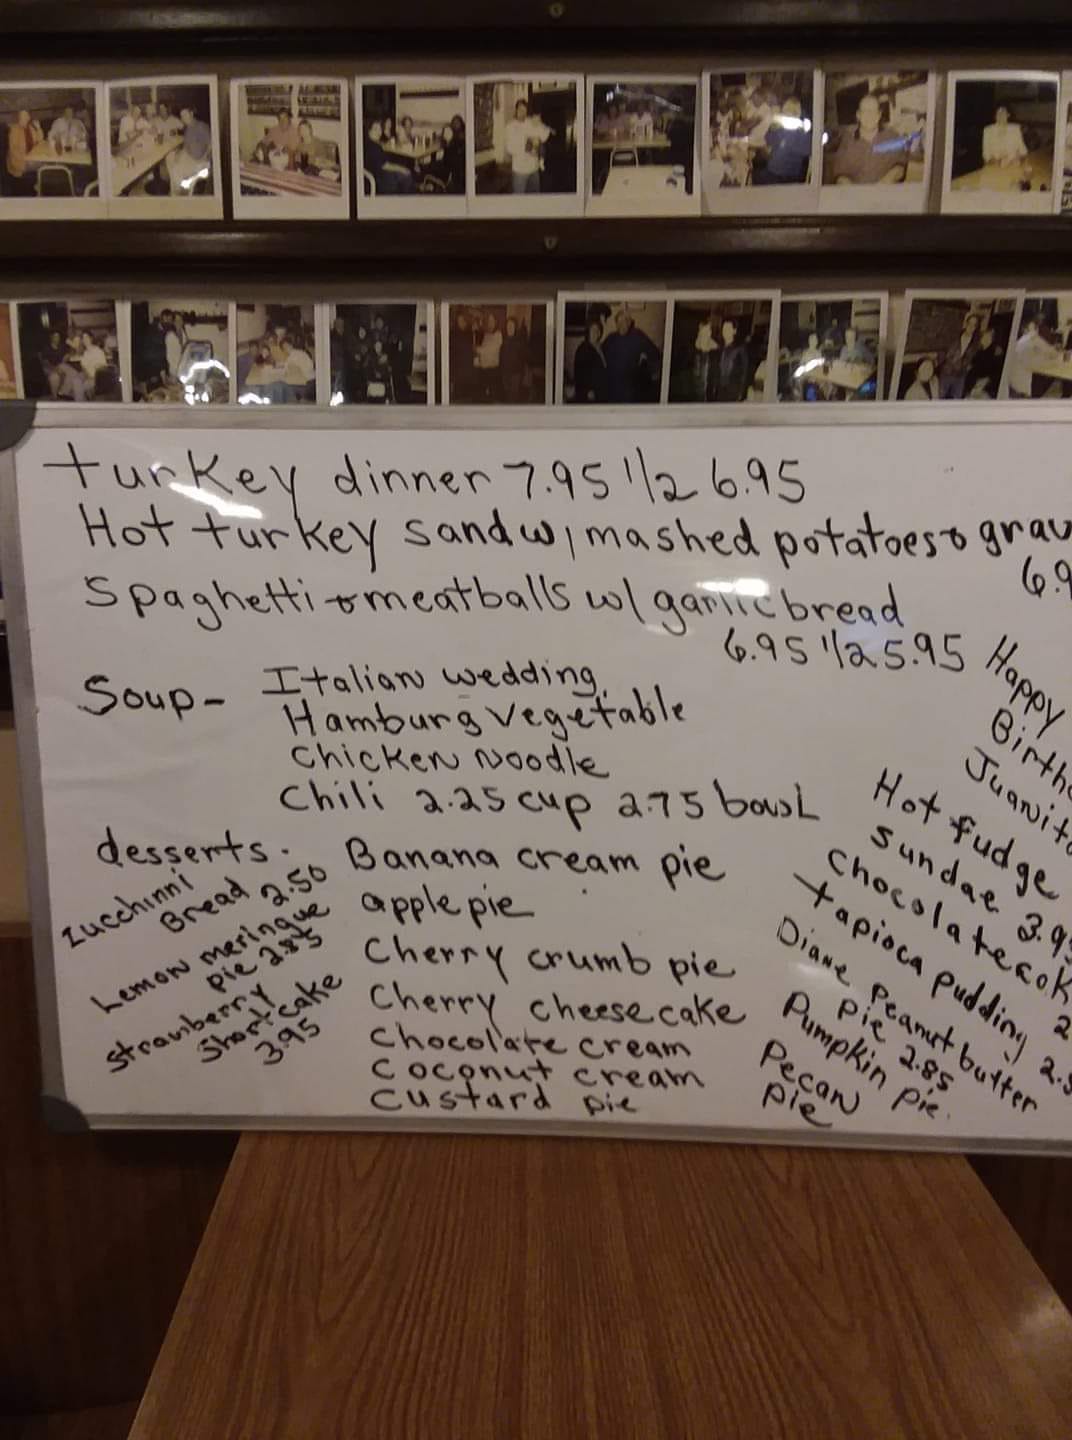 turkey dinner 7.95 1/2 6.95
Hot turkey sandw, mashed potatoes & grav
6.9
Spaghetti & meatballs w/ garlic bread
6.95 1/2 5.95
Soup- Italian wedding
Hamburg vegetable
Chicken Noodle
Chili 2.25 cup 2.75 bowL
Happy
Birthd
Juanita
desserts.
Zucchinni
Bread 2.50
Lemon meringue
pie 2.85
Strawberry
Shortcake
3.95
Banana cream pie
apple pie
Cherry crumb pie
Cherry cheesecake
Chocolate cream
Coconut cream
Custard pie
Hot fudge
Sundae 3.95
Chocolate cok
2
tapioca pudding 2.5
Diane peanut butter
Pie 2.85
Pumpkin pie.
Pecan
Pie